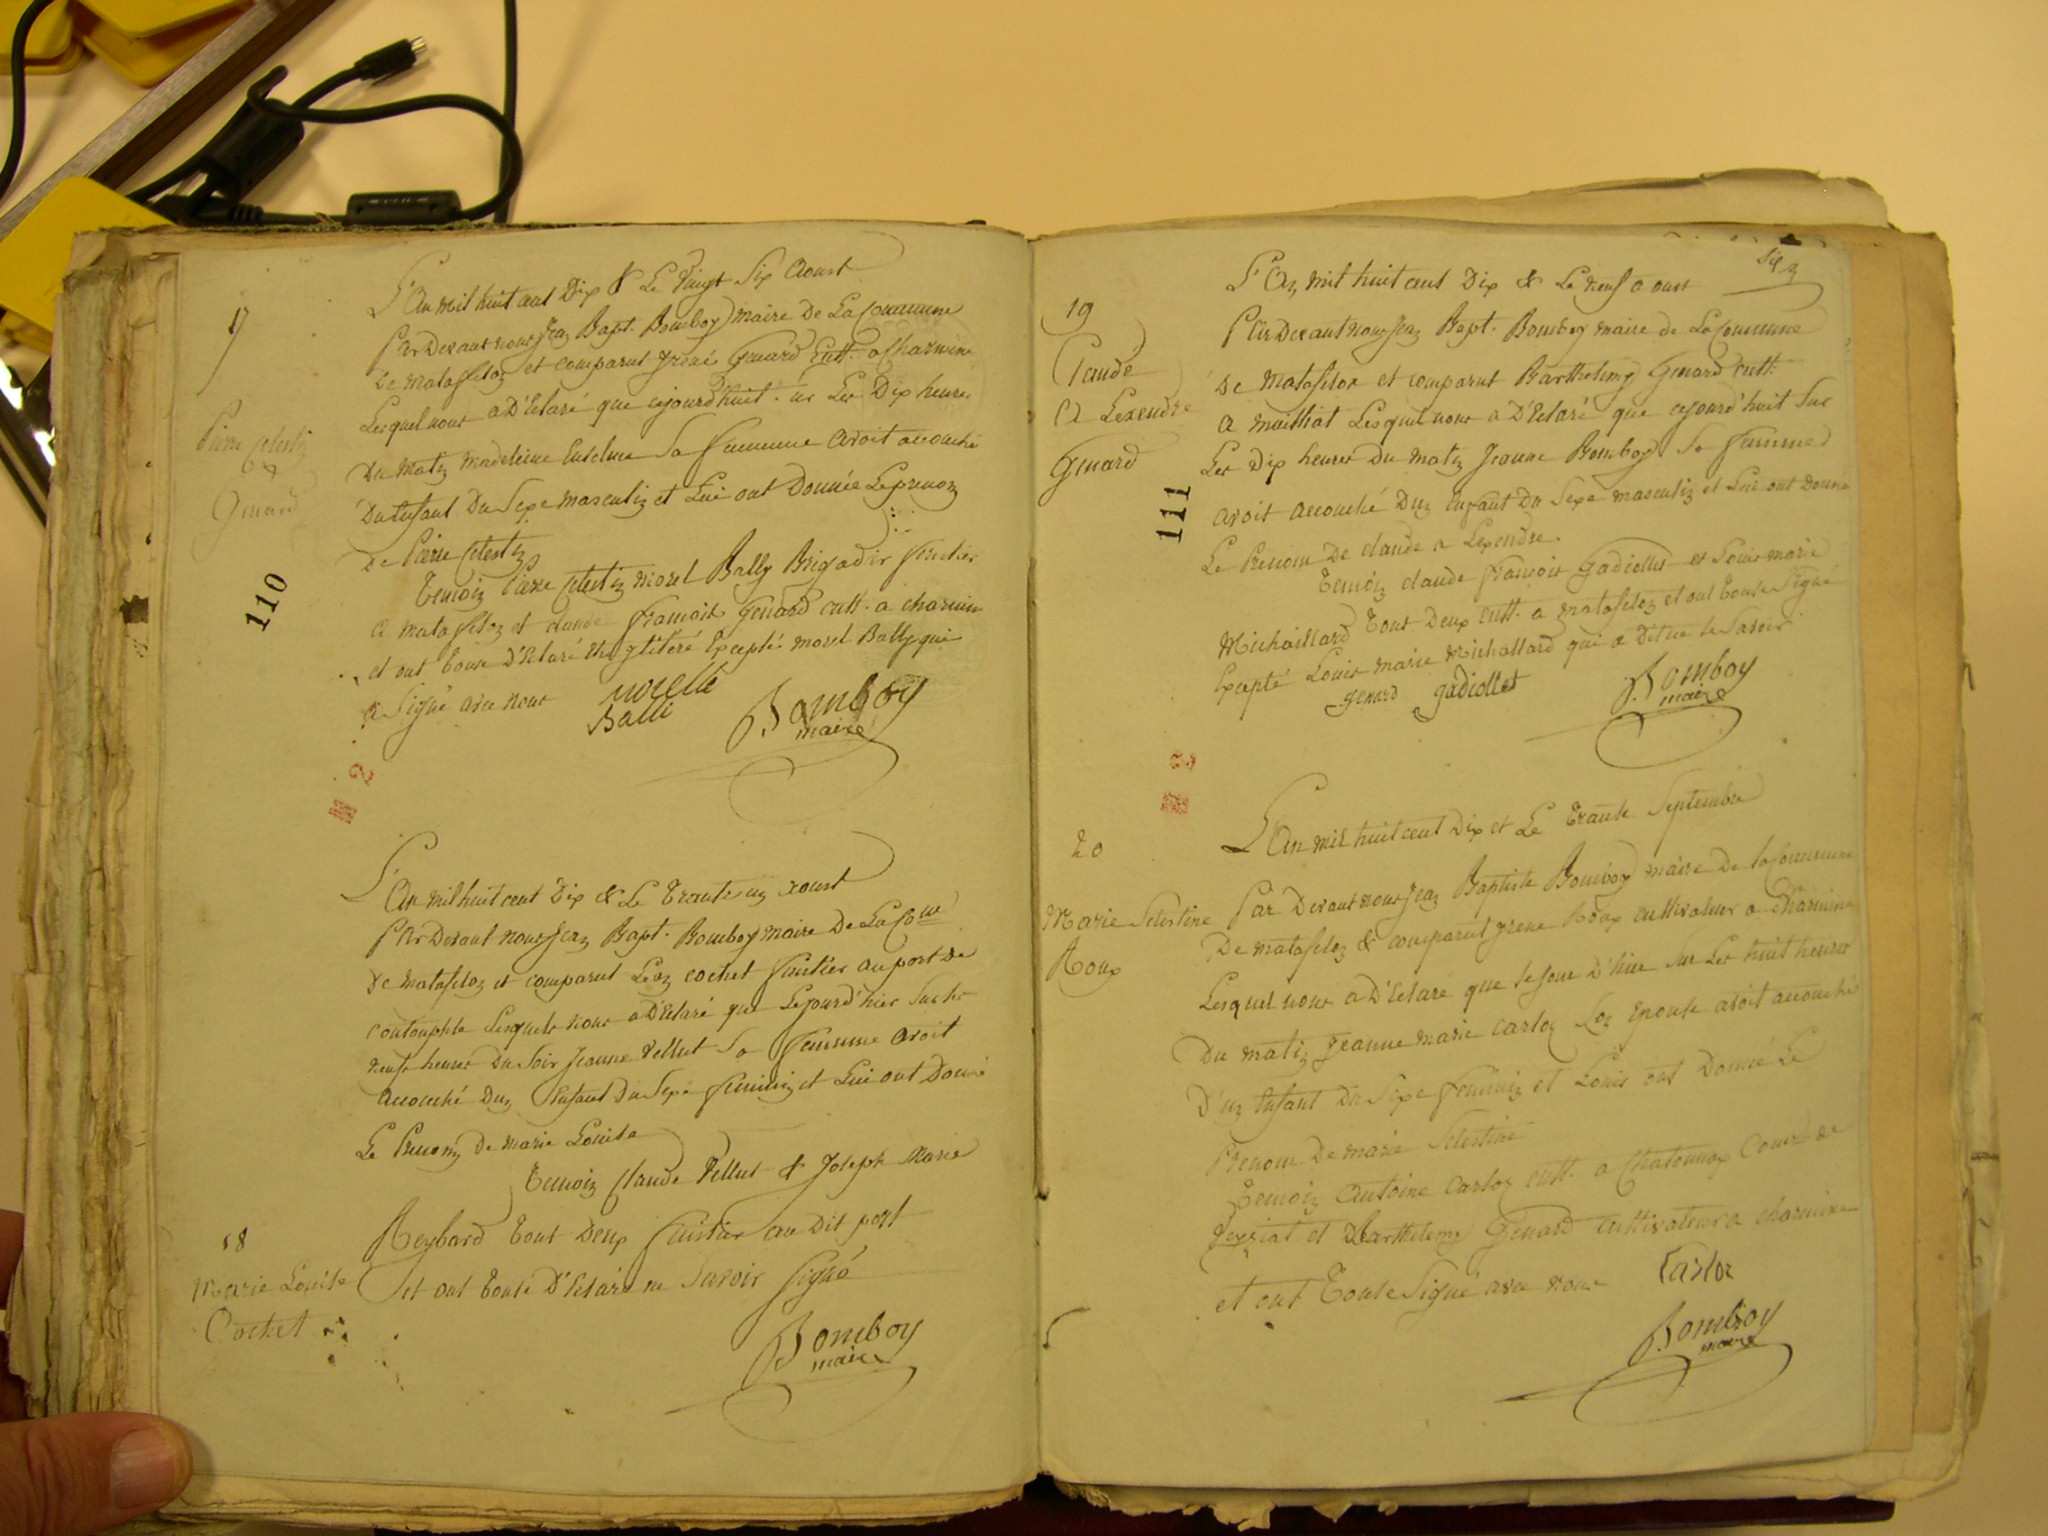 17
Pierre Celestin
Genard
110
L'An mil huit cent Dix & Le Vingt Six Aoust
Par Devant nous Jean Bapt. Bomboy maire De La Commune
De matafeloz et comparut Genard Cult. a Charmine
Lesquel nous a D'Eclaré que cejourd'huit Les Dix heures
Du matin madeleine Sa femme avoit acouché
Du Enfant Du Sexe masculin et Lui ont Donnée Le prenom
De Pierre Celestin
Temoin Pierre Celestin morel Bally Brigadir
a matafeloz et claude François Genard cult. a charmine
et ont Touse D'Eclaré Excepté morel Bally qui
a Signé avec nous
morelle
Balli
Bomboy
maire
2
L'An mil huit cent Dix & Le Trante un Aoust
Par Devant nous Jean Bapt. Bomboy maire De La Cone
De matafeloz et comparut Leon cochet au port de
Lesquels nous a D'Eclaré que Le jourd'hier Sur les
neuf heures Du Soir Jeanne Vellut Sa femme avoit
acouché Dun Enfant Du Sexe feminin et Lui ont Donné
Le Prenom de marie Louise
Temoin Claude Vellut & Joseph Marie
Reybard tout Deux au Dit port
et ont touse D'Eclaré ne Savoir Signé
18
Marie Louise
Cochet
Bomboy
maire
19
Claude
A Lexendre
Genard
111
L'An mil huit cent Dix & Le neuf aoust
Par Devant nous Jean Bapt. Bomboy maire de La Commune
De matafeloz et comparut Barthelemy Genard cult.
a Lesquel nous a D'Eclaré que cejourd'huit Sur
Les Dix heures Du matin Jeanne Bomboy Sa femme
avoit acouché Dun Enfant Du Sexe masculin et Lui ont Donné
Le Prenom De claude a Lexendre.
Temoin claude françois gadiollet et Louis marie
Michaillard tout Deux cult. a matafeloz et ont touse Signé
Excepté Louis marie Michallard qui a Dit ne le Savoir
genard gadiollet
Bomboy
maire
2
20
Marie Selestine
Roux
L'An mil huit cent Dix et Le Trante Septembre
Par Devant nous Jean Baptiste Bomboy maire De la Commune
De matafeloz & comparut Roux cultivateur a Charmine
Lesquel nous a D'Eclaré que le jour D'hier Sur Les huit heures
Du matin Jeanne marie carloz Son Epouse avoit acouché
D'un Enfant Du Sexe feminin et ont Donné Le
Prenom De marie Selestine
Temoin Antoine carloz cult. a Chatonnax Comune de
et Barthelemy Genard cultivateur a charmine
et ont Touse Signé avec nous
Carloz
Bomboy
maire